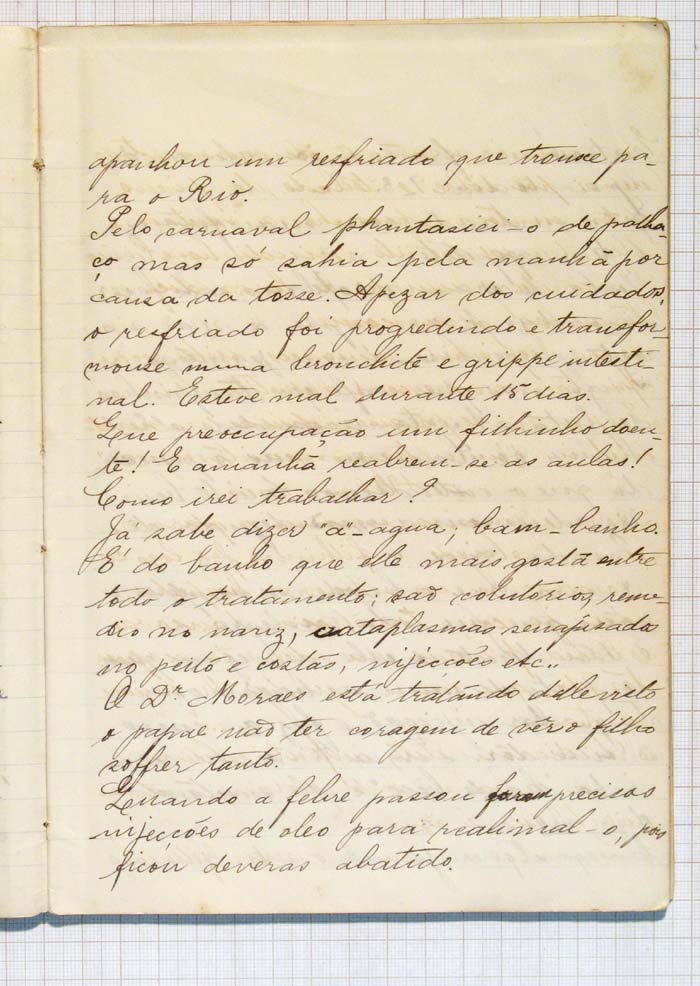 apanhou um resfriado que trouxe pa-
ra o Rio.
Pelo carnaval phantasiei-o de palha-
ço mas só sahia pela manhã por
causa da tosse. Apezar dos cuidados,
o resfriado foi progredindo e transfor-
mouse numa bronchite e grippe intesti-
nal. Esteve mal durante 15 dias.
Que preoccupação um filhinho doen-
te! E amanhã reabrem-se as aulas!
Como irei trabalhar?
Já sabe dizer "a"-agua; bam-banho.
É do banho que elle mais gosta entre
todo o tratamento; são colutorios, reme-
dio no nariz, cataplasmas senapisadas
no peito e costas, injecções etc..
O Dr. Moraes está tratando delle visto
o papae não ter coragem de vêr o filho
soffrer tanto.
Quando a febre passou foram precisas
injecções de oleo para realimal-o, pois
ficou deveras abatido.